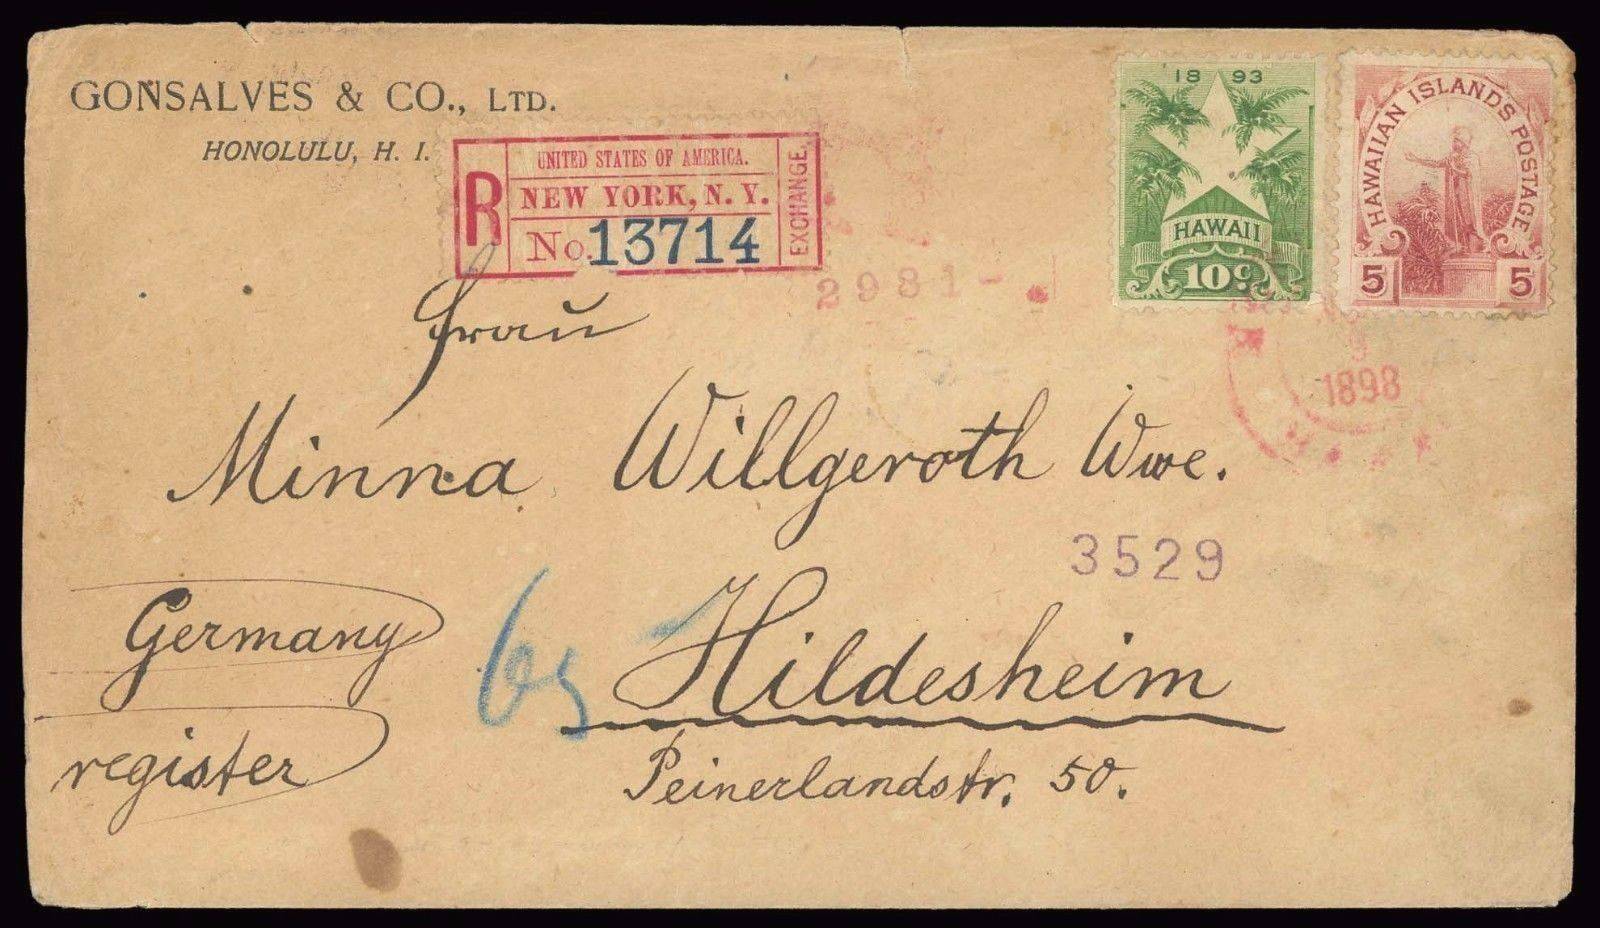 GONSALVES & CO., LTD.
HONOLULU, H. I.
R
UNITED STATES OF AMERICA.
NEW YORK, N. Y.
No. 13714
EXCHANGE.
2981-
18 93
HAWAII
10c
HAWAIIAN ISLANDS POSTAGE
5 5
1898
Frau
Minna Willgeroth Wwe.
3529
Germany
Hildesheim
register
Peinerlandstr. 50.